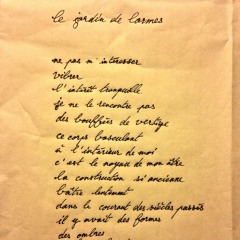 le jardin de larmes
ne pas m'intéresser
vibrer
l'intérêt tranquille
je ne le rencontre pas
des bouffées de vertige
ce corps basculant
à l'intérieur de moi
c'est le noyau de mon être
la construction si ancienne
bâtie lentement
dans le courant des siècles passés
il y avait des formes
des ombres